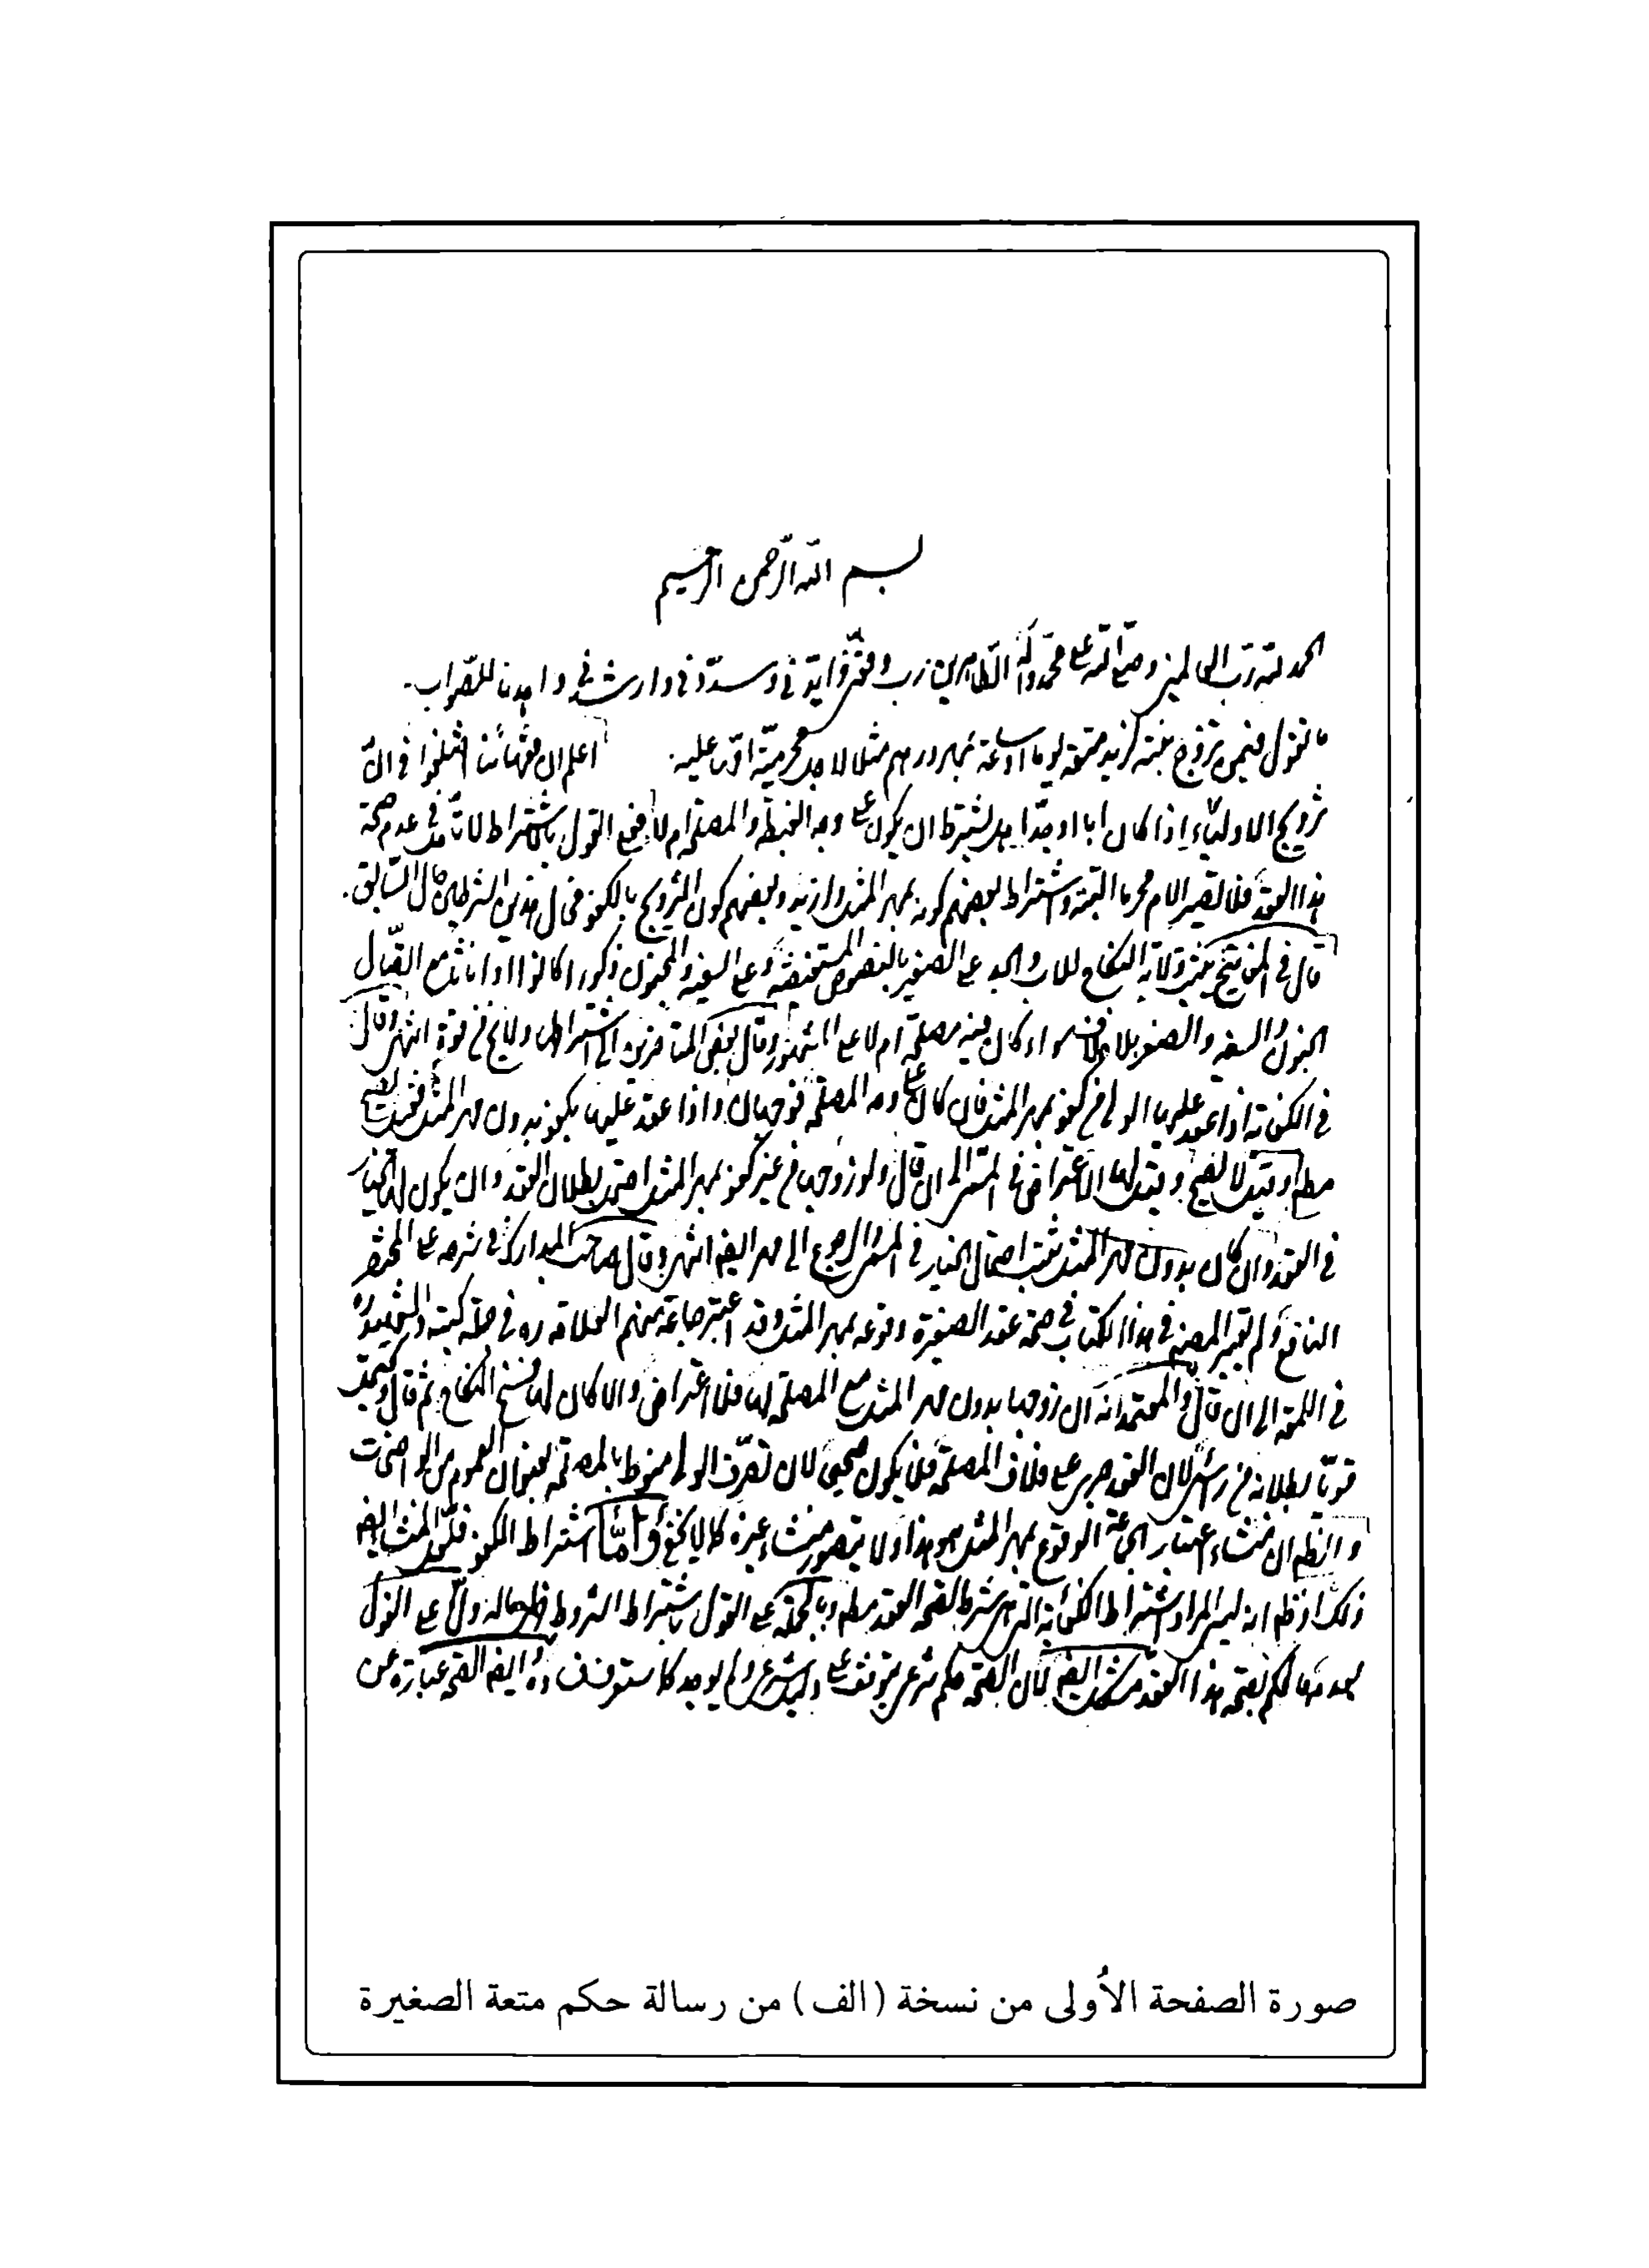 بسم الله الرحمن الرحيم
الحمد لله رب العالمين وصلى الله على محمد وآله الطاهرين رب وفقني وأيدني وسددني وارشدني واهدنا للصواب
ما تقول فيمن تزوج بنته متعة يوما او ساعة بمهر درهم مثلا لاجل محرمية امها عليه اعلم ان فقهائنا اختلفوا في ان
تزويج الاولياء اذا كان ابا او جدا هل يشترط ان يكون على وجه الغبطة والمصلحة ام لا فعلى القول باشتراط لا تأمل في عدم صحة
هذا العقد فلا تصير الام محرما البتة واشتراط بعضهم كونه بمهر المثل وازيد وبعضهم كون التزويج بالكفو فحال هذين الشرطين حال السابق
قال في المفاتيح تثبت ولاية النكاح للاب والجد على الصغير بالنصوص المستفيضة وعلى السفيه والمجنون ذكورا كانوا او اناثا مع اتصال
الجنون والسفه والصغر بلا خلاف سواء كان فيه مصلحة ام لا على المشهور وقال بعض المتأخرين الى اشتراطها ولا يخ من قوة انتهى وقال
في الكفاية اذا عقد عليها الولي من كفو بمهر المثل فان كان على وجه المصلحة فوجهان واذا عقد عليها بكفو بدون مهر المثل فقيل يصح
مطلقا وقيل لا يصح وقيل لها الاعتراض في المسمى الى ان قال ولو زوجها من غير كفو بمهر المثل احتمل بطلان العقد وان يكون لها الخيار
في العقد وان كان بدون مهر المثل ثبت احتمال الخيار في المسمى والرجوع الى مهر ايضا انتهى وقال صاحب المدارك في شرحه على المختصر
النافع ولم يعتبر المصنف في هذا الكتاب في صحة عقد الصغيرة وقوعه بمهر المثل وقد اعتبر جماعة منهم العلامة ره في جملة كتبه والشهيد ره
في اللمعة الى ان قال والمعتمد انه ان زوجها بدون مهر المثل مع المصلحة لها فلا اعتراض والا كان لها فسخ النكاح ثم قال ويحتمل
قويا بطلانه من رأس لان العقد جرى على خلاف المصلحة فلا يكون صحيحا لان تصرف الولي منوط بالمصلحة
والظاهر ان منشأ اعتبار الجماعة الوقوع بمهر المثل هو هذا ولا يتصور منشأ غيره كما لا يخفى واما اشتراط الكفو فلعل المنشأ ايضا
ذلك اذ ظاهر انه ليس المراد اشتراط الكفاءة التي هي شرط لصحة العقد مطلقا وبالجملة على القول باشتراط الشروط ظهر حاله واما على القول
بعدمها فالحكم بصحة هذا العقد مشكل ايضا لان الصحة حكم شرعي يتوقف على دليل شرعي ولم يوجد كما ستعرف وايضا الصحة عبارة عن
صورة الصفحة الأولى من نسخة (الف) من رسالة حكم متعة الصغيرة